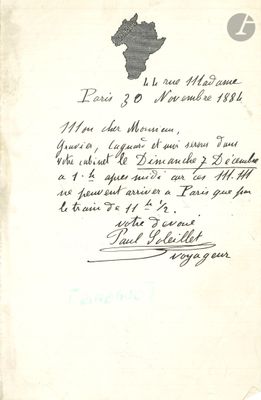 44 rue Madame
Paris 30 Novembre 1884
Mon cher Monsieur,
Gravier, et moi serons dans
votre cabinet le Dimanche 7 Décembre
a 1. h apres midi car ces M.M
ne peuvent arriver a Paris que par
le train de 11 h 1/2.
votre devoué
Paul Soleillet
voyageur